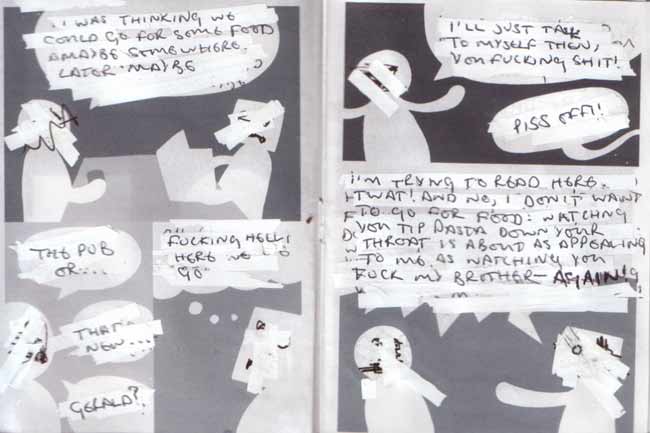 I WAS THINKING WE
COULD GO FOR SOME FOOD
AMAYBE SOMEWHERE.
LATER MAYBE
THE PUB
OR....
THAT
NEW...
GERALD?
FUCKING HELL,
HERE WE
GO.
I'LL JUST TALK
TO MYSELF THEN,
YOU FUCKING SHIT!
PISS OFF!!
I'M TRYNG TO READ HERE.
TWAT! AND NO, I DON'T WANT
TO GO FOR FOOD: WATCHNG
YOU TIP PASTA DOWN YOUR
THROAT IS ABOUT AS APPEALING
TO ME AS WATCHING YOU
FUCK MY BROTHER - AGAIN!